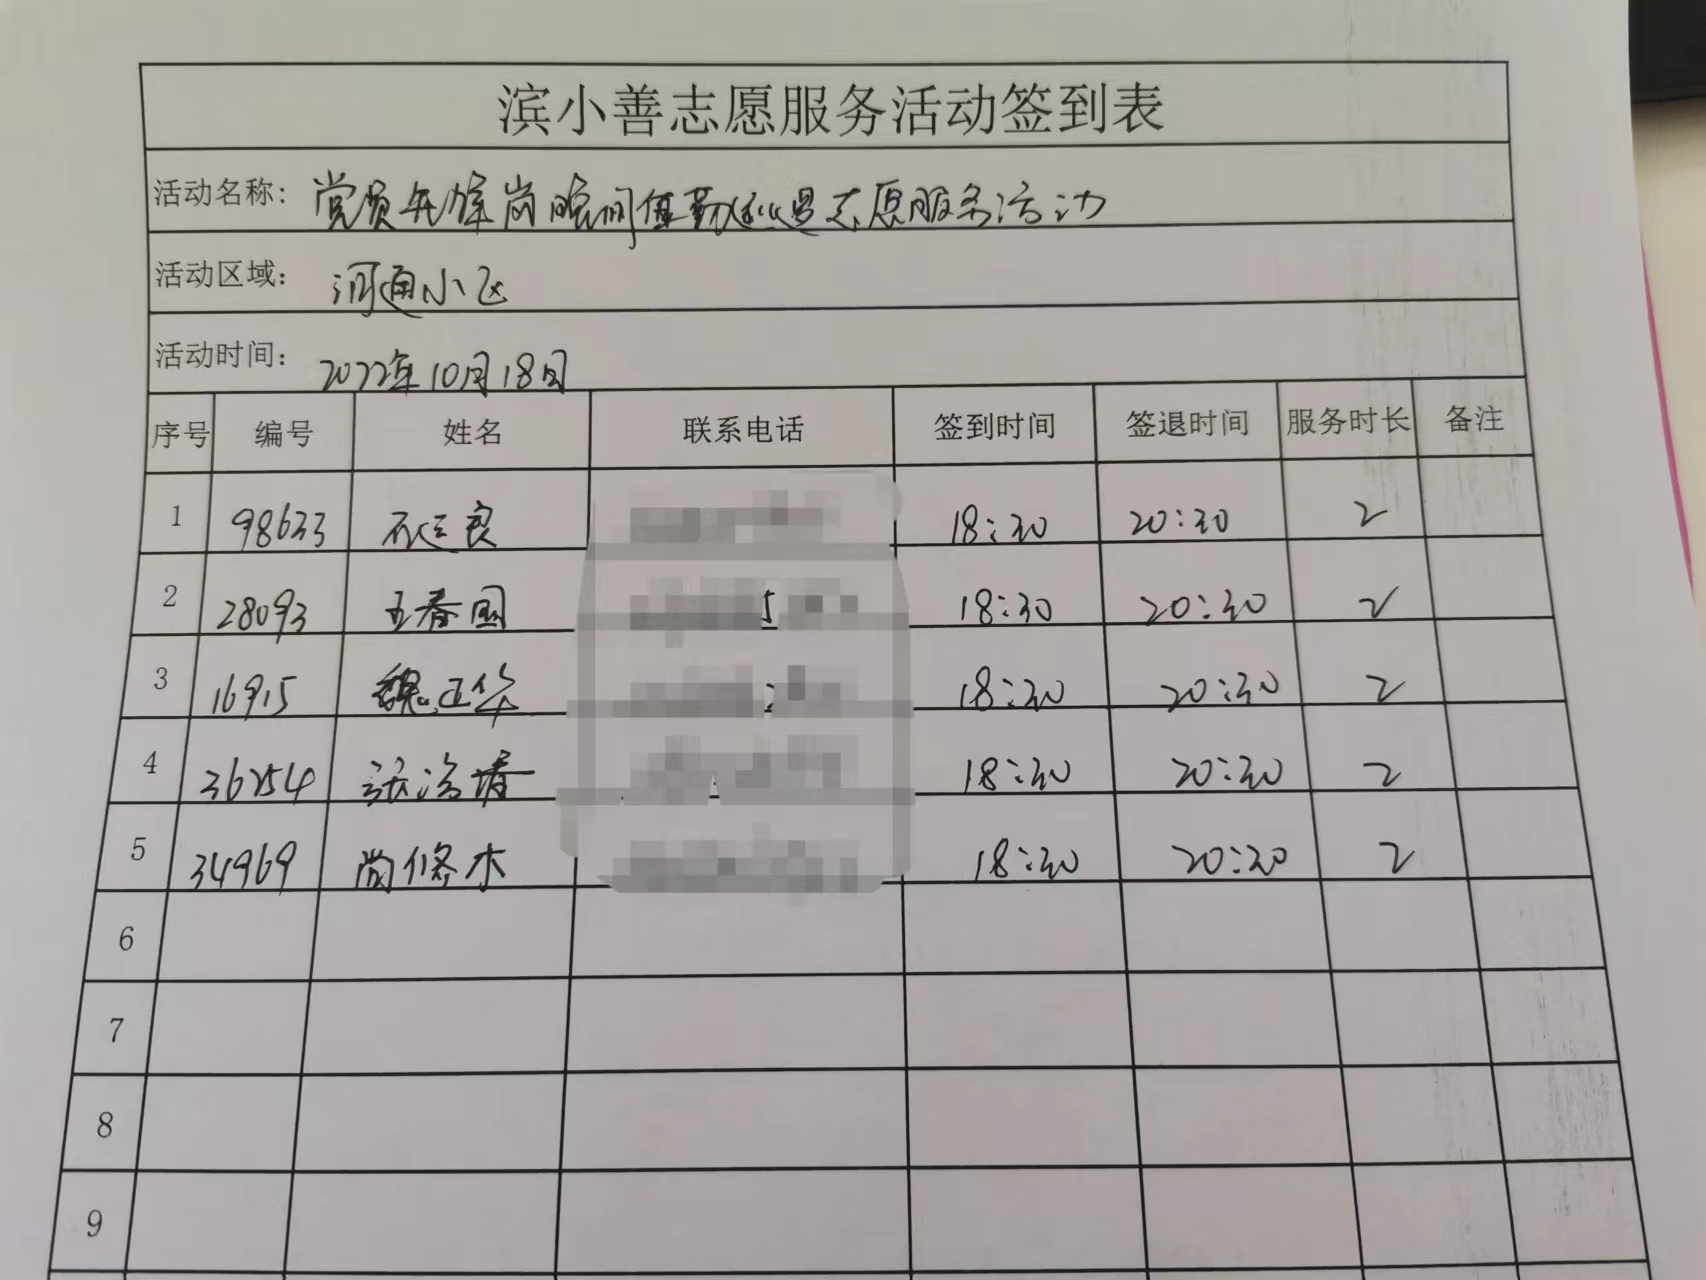 滨小善志愿服务活动签到表
活动名称: 党员先锋岗晚间值勤巡逻志愿服务活动
活动区域: 河通小区
活动时间: 2022年10月18日
序号 编号 姓名 联系电话 签到时间 签退时间 服务时长 备注
1 98633 石运良 18:30 20:30 2
2 28093 王春国 18:30 20:30 2
3 16915 魏正华 18:30 20:30 2
4 36254 18:30 20:30 2
5 34969 尚修木 18:30 20:30 2
6
7
8
9